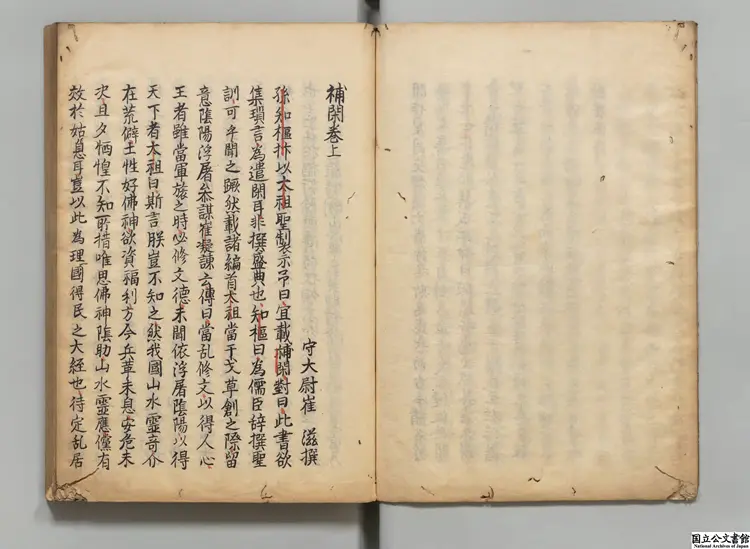 補閑卷上
守大尉崔 滋撰
孫知樞抃以太祖聖制示予曰宜載補閑對曰此書欲
集瑣言為遣閑耳非撰盛典也知樞曰為儒臣辞撰聖
訓可乎聞之蹶然載諸編首太祖當干戈草創之際留
意陰陽浮屠叅謀崔凝諫云傳曰當乱修文以得人心
王者雖當軍旅之時必修文德未聞依浮屠陰陽以得
天下者太祖曰斯言朕豈不知之然我國山水靈奇介
在荒僻土性好佛神欲資福利方今兵革未息安危未
决旦夕恓惶不知所措唯思佛神陰助山水靈應儻有
效於姑息耳豈以此為理國得民之大經也待定乱居
国立公文書館
National Archives of Japan